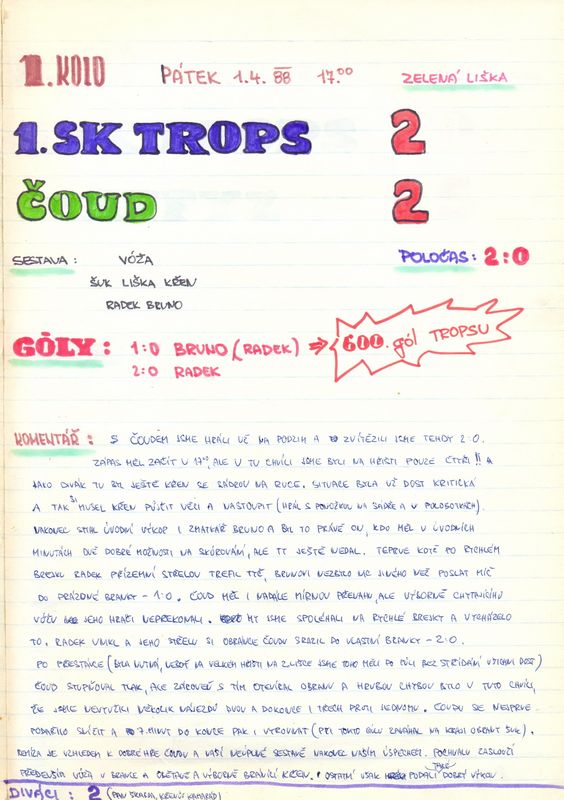 1. KOLO PÁTEK 1.4. 88 17.00 ZELENÁ LIŠKA
1. SK TROPS 2
ČOUD 2
SESTAVA : VÓŽA POLOČAS : 2:0
ŠUK LIŠKA KŘEN
RADEK BRUNO
GÓLY : 1:0 BRUNO (RADEK) ⇒ 600. gól TROPSU
2:0 RADEK
KOMENTÁŘ : S ČOUDEM JSME HRÁLI UŽ NA PODZIM A ZVÍTĚZILI JSME TEHDY 2:0.
ZÁPAS MĚL ZAČÍT V 17.00, ALE V TU CHVÍLI JSME BYLI NA HŘIŠTI POUZE ČTYŘI !! A
JAKO DIVÁK TU BYL JEŠTĚ KŘEN SE SÁDROU NA RUCE. SITUACE BYLA UŽ DOST KRITICKÁ
A TAK SI MUSEL KŘEN PŮJČIT VĚCI A NASTOUPIT (HRÁL S PONOŽKOU NA SÁDŘE A V POLOBOTKÁCH).
NAKONEC STIHL ÚVODNÍ VÝKOP I ZMATKÁŘ BRUNO A BYL TO PRÁVĚ ON, KDO MĚL V ÚVODNÍCH
MINUTÁCH DVĚ DOBRÉ MOŽNOSTI NA SKÓROVÁNÍ, ALE TY JEŠTĚ NEDAL. TEPRVE KDYŽ PO RYCHLÉM
BREJKU RADEK PŘÍZEMNÍ STŘELOU TREFIL TYČ, BRUNOVI NEZBYLO NIC JINÉHO NEŽ POSLAT MÍČ
DO PRÁZDNÉ BRANKY - 1:0. ČOUD MĚL I NADÁLE MÍRNOU PŘEVAHU, ALE VÝBORNĚ CHYTAJÍCÍHO
VÓŽU JEHO HRÁČI NEPŘEKONALI. MY JSME SPOLÉHALI NA RYCHLÉ BREJKY A VYCHÁZELO
TO. RADEK UNIKL A JEHO STŘELU SI OBRÁNCE ČOUDU SRAZIL DO VLASTNÍ BRANKY - 2:0.
PO PŘESTÁVCE (BYLA NUTNÁ, NEBOŤ NA VELKÉM HŘIŠTI NA Z.LIŠCE JSME TOHO MĚLI PO PŮLI BEZ STŘÍDÁNÍ VŠICHNI DOST)
ČOUD STUPŇOVAL TLAK, ALE ZÁROVEŇ S TÍM OTEVÍRAL OBRANU A HRUBOU CHYBOU BYLO V TUTO CHVÍLI,
ŽE JSME NEVYUŽILI NĚKOLIK NÁJEZDŮ DVOU A DOKONCE I TŘECH PROTI JEDNOMU. ČOUDU SE NEJPRVE
PODAŘILO SNÍŽIT A 7 MINUT DO KONCE PAK I VYROVNAT (PŘI TOMTO GÓLU ZAVÁHAL NA KRAJI OBRANY ŠUK).
REMÍZA JE VZHLEDEM K DOBRÉ HŘE ČOUDU A NAŠÍ NEÚPLNÉ SESTAVĚ NAKONEC NAŠÍM ÚSPĚCHEM. POCHVALU ZASLOUŽÍ
PŘEDEVŠÍM VÓŽA V BRANCE A OBĚTAVĚ A VÝBORNĚ BRÁNÍCÍ KŘEN. OSTATNÍ VŠAK TAKÉ PODALI DOBRÝ VÝKON.
DIVÁCI : 2 (PAN SKÁCEL, KŘENŮV KAMARÁD)